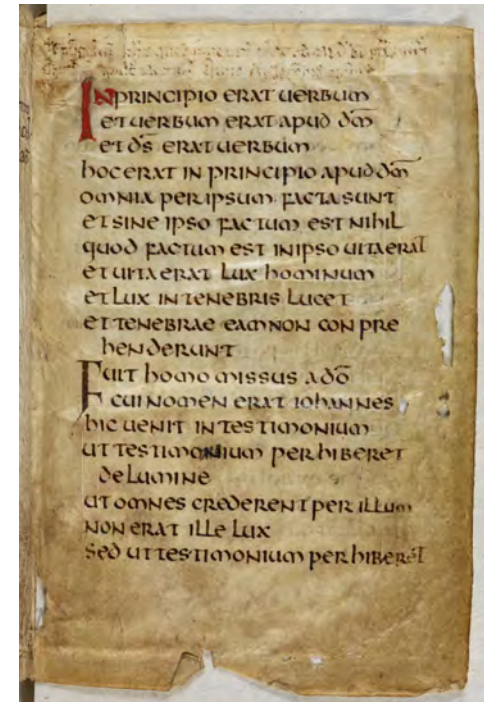 IN PRINCIPIO ERAT UERBUM
ET UERBUM ERAT APUD DM̅
ET DS̅ ERAT UERBUM
HOC ERAT IN PRINCIPIO APUD DM̅
OMNIA PER IPSUM FACTA SUNT
ET SINE IPSO FACTUM EST NIHIL
QUOD FACTUM EST IN IPSO UITA ERAT
ET UITA ERAT LUX HOMINUM
ET LUX IN TENEBRIS LUCET
ET TENEBRAE EAM NON CON PRE
HENDERUNT
FUIT HOMO MISSUS A DO̅
CUI NOMEN ERAT IOHANNES
HIC UENIT IN TESTIMONIUM
UT TESTIMONIUM PERHIBERET
DE LUMINE
UT OMNES CREDERENT PER ILLUM
NON ERAT ILLE LUX
SED UT TESTIMONIUM PERHIBERET